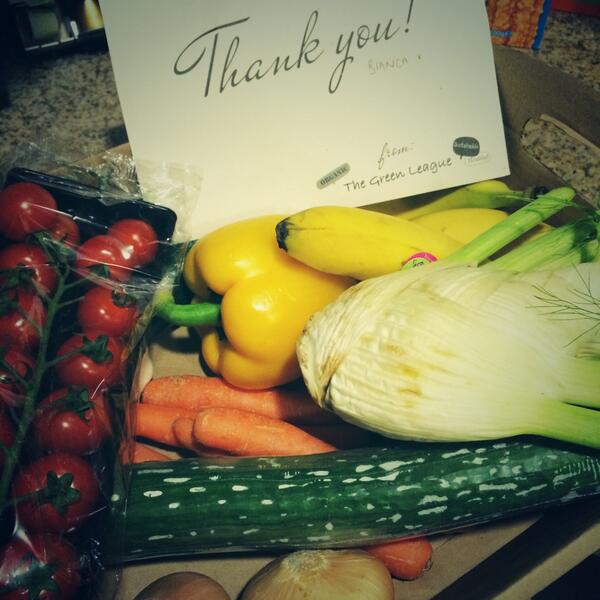 Thank you!
BIANCA x
from:
ORGANIC
The Green League